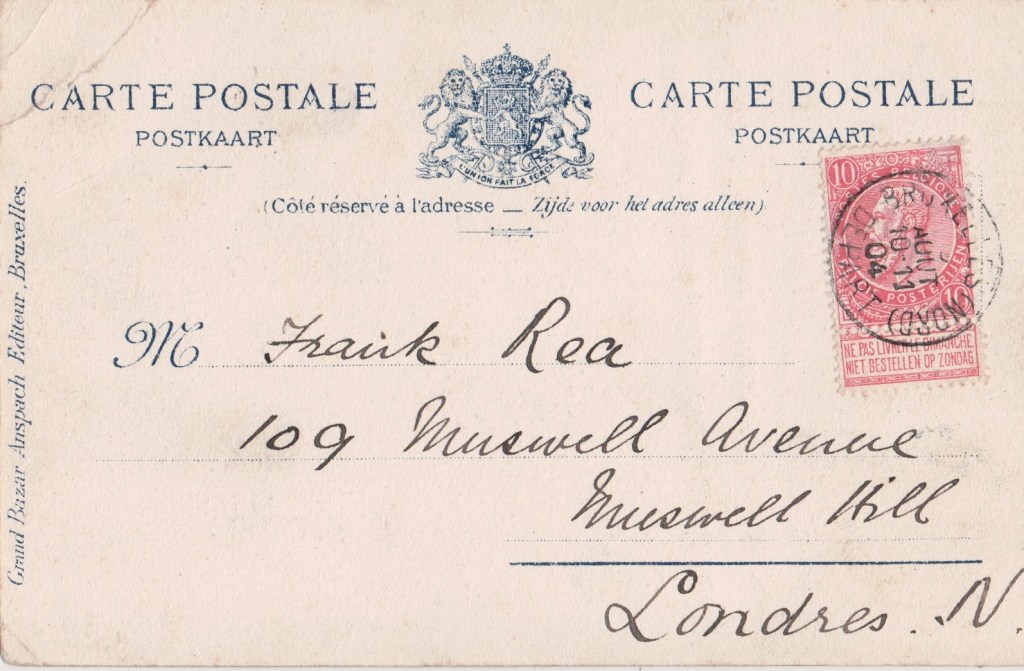 CARTE POSTALE
POSTKAART
L'UNION FAIT LA FORCE
CARTE POSTALE
POSTKAART
(Côté réservé à l'adresse _ Zijde voor het adres alleen)
10
POSTERIJEN
10
NE PAS LIVRER LE DIMANCHE
NIET BESTELLEN OP ZONDAG
BRUXELLES (NORD)
DEPART
AOUT
10-11
04
M Frank Rea
109 Muswell Avenue
Muswell Hill
Londres. N.
Grand Bazar Anspach Editeur, Bruxelles.